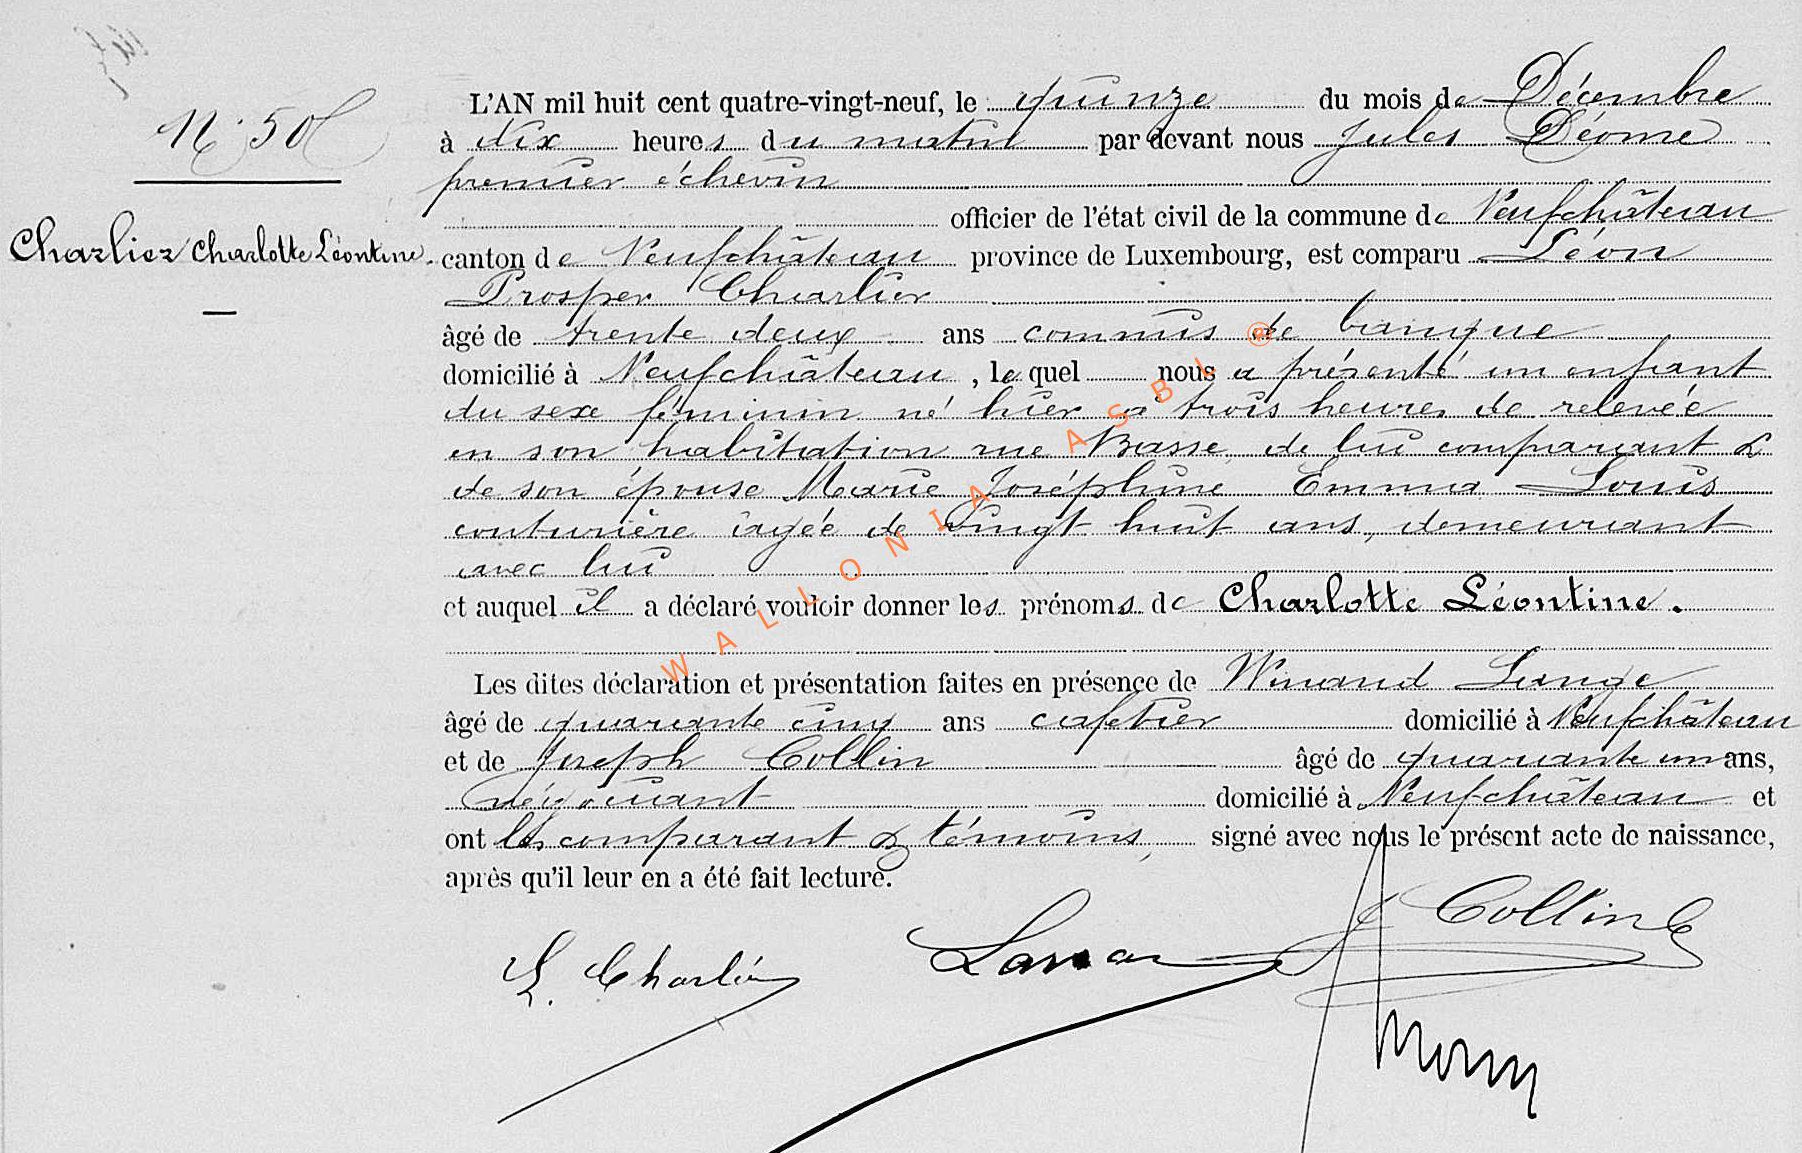 N° 50
Charlier Charlotte Léontine.
L'AN mil huit cent quatre-vingt-neuf, le quinze du mois de Décembre
à dix heures du matin par devant nous Jules Déome
premier échevin
officier de l'état civil de la commune de Neufchâteau
canton de Neufchâteau province de Luxembourg, est comparu Léon
Prosper Charlier
âgé de trente deux ans commis de banque
domicilié à Neufchâteau, lequel nous a présenté un enfant
du sexe féminin né hier à trois heures de relevée
en son habitation rue Basse, de lui comparant &
de son épouse Marie Joséphine Emma Louis
couturière âgée de vingt huit ans, demeurant
avec lui
et auquel il a déclaré vouloir donner les prénoms de Charlotte Léontine.
Les dites déclaration et présentation faites en présence de Winand Lange
âgé de quarante cinq ans cafetier domicilié à Neufchâteau
et de Joseph Collin âgé de quarante un ans,
négociant domicilié à Neufchâteau et
ont les comparant & témoins, signé avec nous le présent acte de naissance,
après qu'il leur en a été fait lecture.
L. Charlier
Collin
WALLONIA ASBL ®